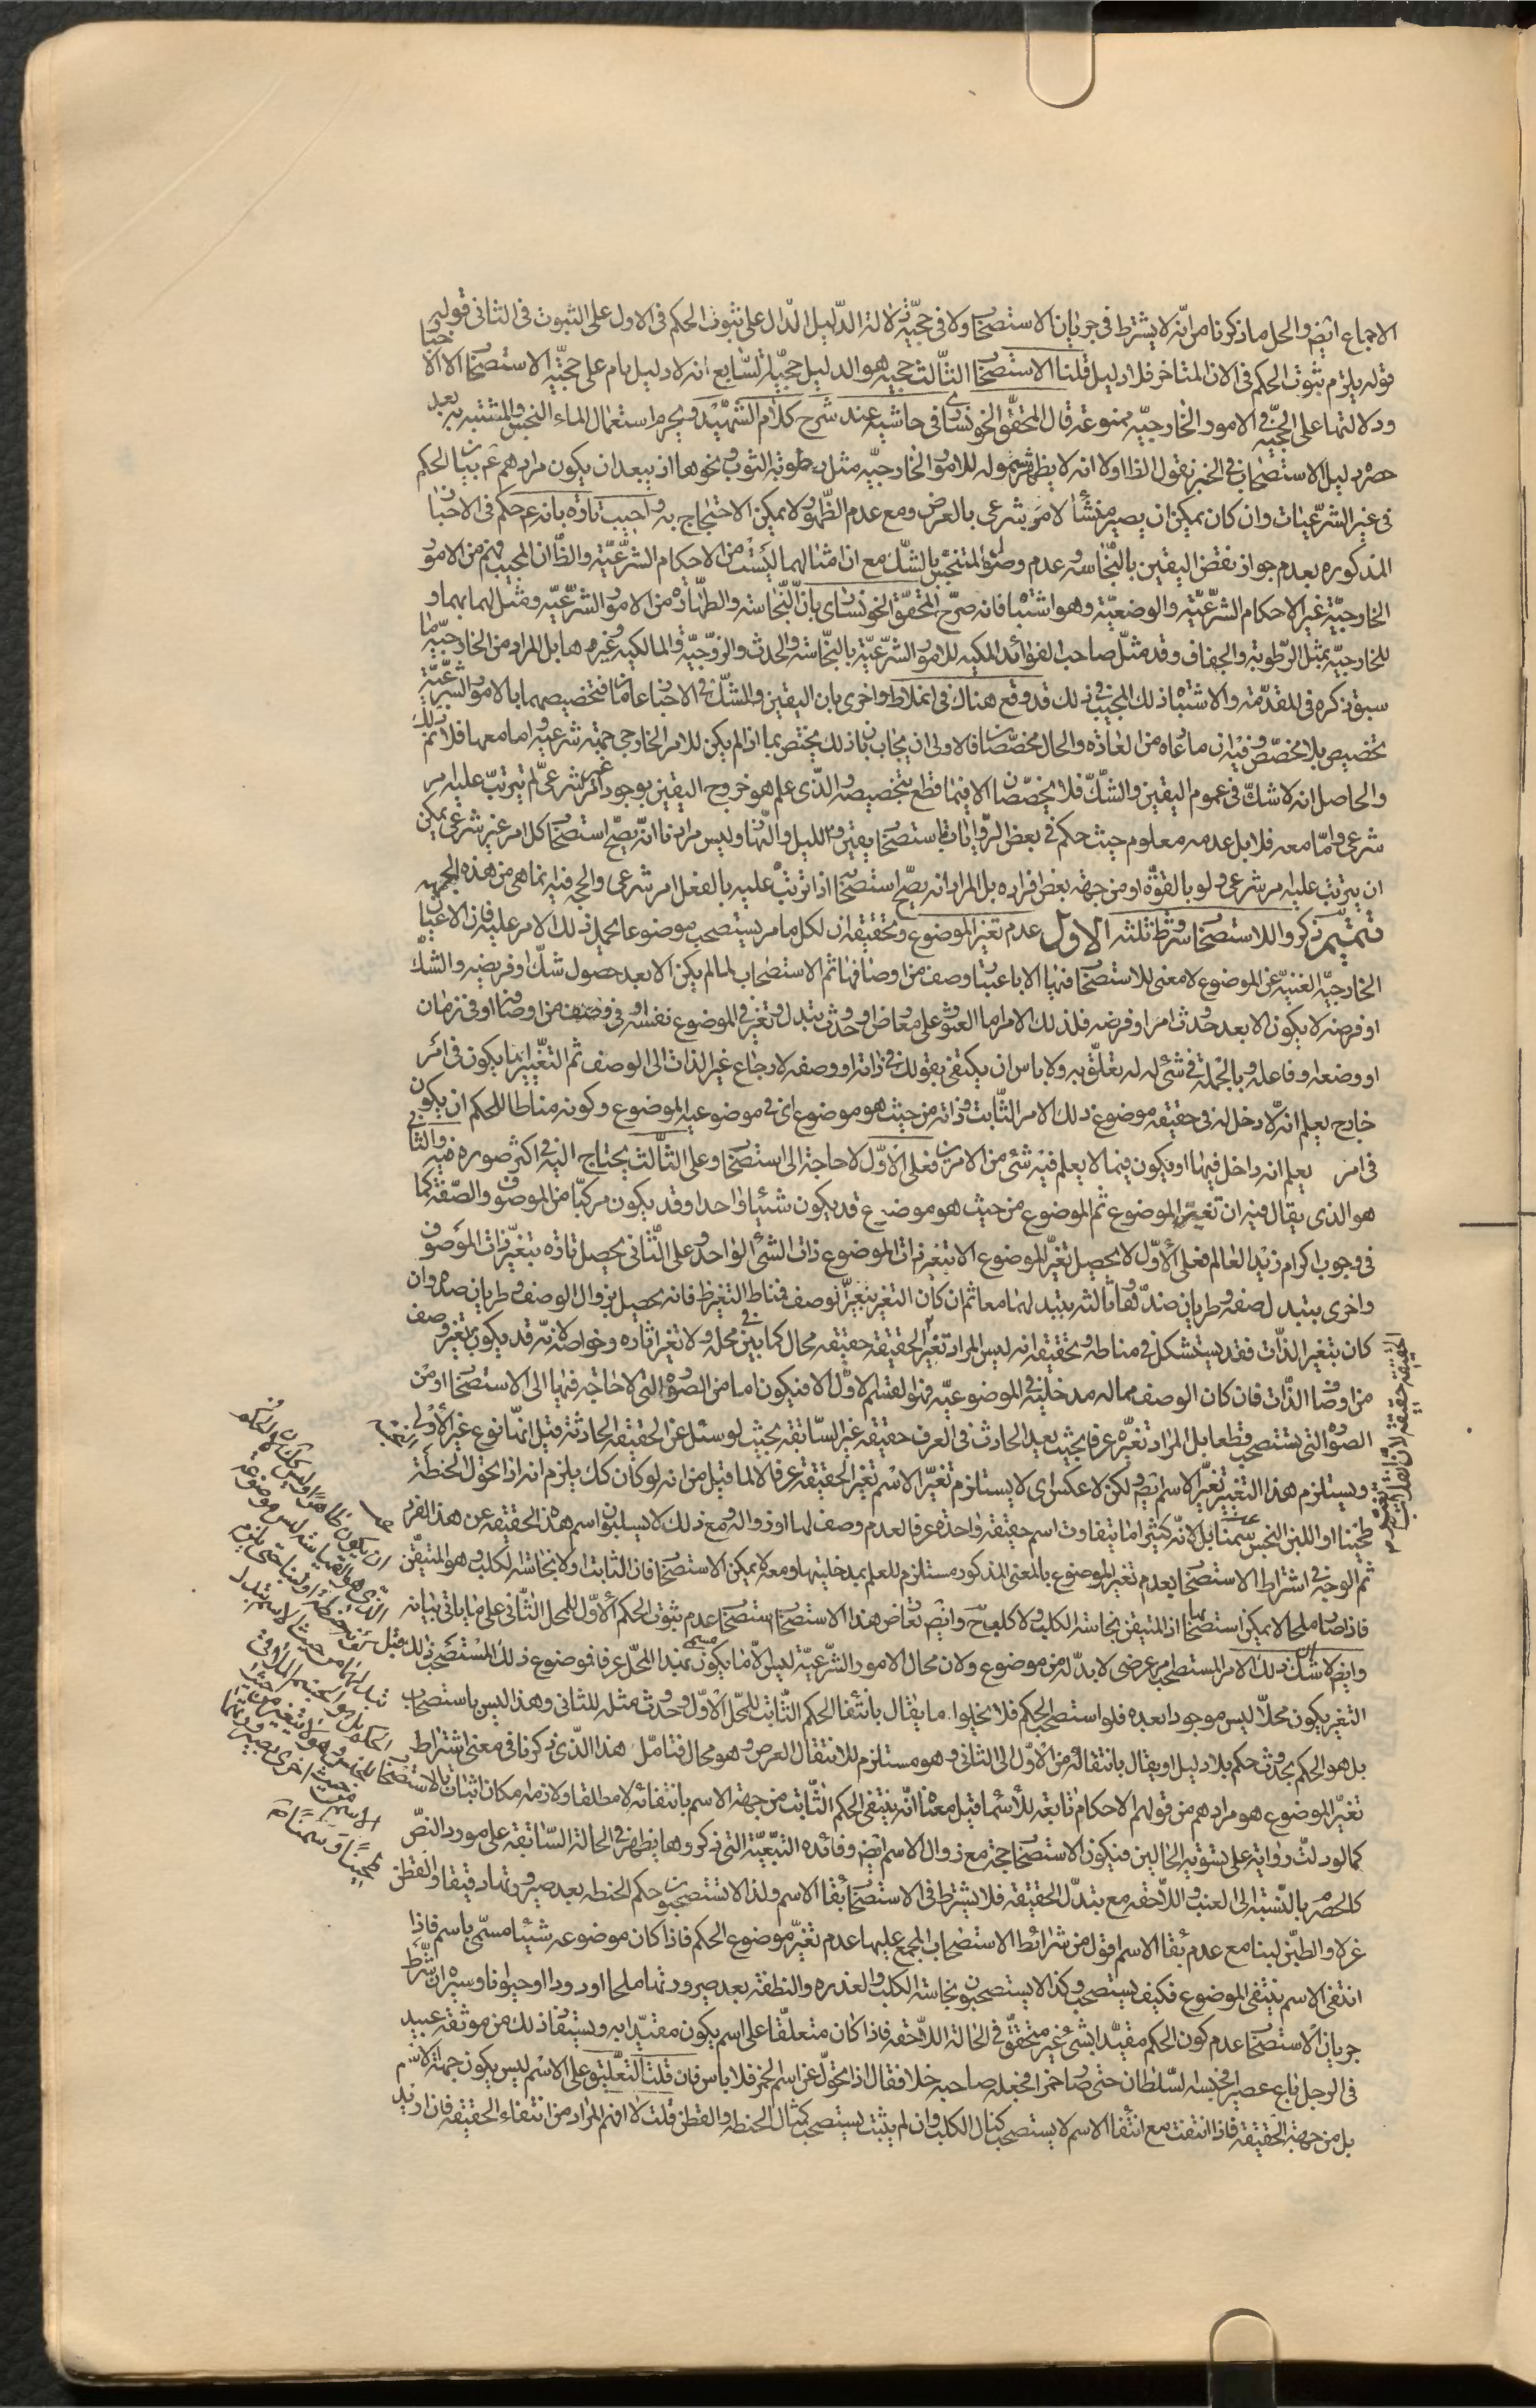 الاجماع ايض والحل ما ذكرنا من انّه لا يشترط فى جريان الاستصحاب ولا فى حجّيته دلالة الدّليل الدّال على ثبوت الحكم فى الاول على الثبوت فى الثانى قوله
قوله يلزم ثبوت الحكم فى الان المتاخر فلا دليل قلنا الاستصحاب الثّالث حجيه هو الدليل حجيّة السّابع انه لا دليل تام على حجيّة الاستصحاب الا الاخبار
ودلالتها على الحجّيه فى الامور الخارجيّه ممنوعة قال المحقّق الخونسارى فى حاشيه عند شرح كلام الشهيد ويحرم استعمال الماء النجس والمشتبه به بعد
حصر دليل الاستصحاب فى الخبر نقول اولا انه لا يظهر شموله للامور الخارجيّه مثل رطوبة الثوب ونحوها اذ يبعد ان يكون مرادهم ع بيان الحكم
فى غير الشرعيّات وان كان يمكن ان يصير منشأ لامر شرعى بالعرض ومع عدم الظّهور لا يمكن الاحتجاج به واجيب تارة بانه ع حكم فى الاخبار
المذكوره بعدم جواز نقض اليقين بالنّجاسه وعدم وصول المتنجّس بالشّك مع ان امثالهما ليست من الاحكام الشرعيّة والظّان المجيب فهم من الامور
الخارجيّة غير الاحكام الشرعيّة والوضعيّة وهو اشتباه فانه صرّح المحقّق الخونسارى بانّ النّجاسة والطّهارة من الامور الشرعيّه ومثّل لهما بهما و
للخارجيّه بمثل الرّطوبة والجفاف وقد مثّل صاحب الفوائد المكيه للامور الشرعيّة بالنّجاسة والحدث والزّوجيّه والمالكيه وغيرها بل المراد من الخارجيّه ما
سبق ذكره فى المقدّمة والاشتباه ذلك المجيب فى ذلك قد وقع هناك فى اغلاط واخرى بان اليقين والشّك فى الاخبار عامّان فتخصيصهما بالامور الشرعيّة
تخصيص بلا مخصّص وفيه ان ما ادعاه من العادة والحال مخصّصان فالاولى ان يجاب بان ذلك يختص بما اذا لم يكن للامر الخارجى جهة شرعيه واما معها فلا ثم
والحاصل انه لا شكّ فى عموم اليقين والشّكّ فلا يخصّصان الا فيما قطع بتخصيصه والذّى علم هو خروج اليقين بوجود امر غير شرعىّ لم يترتب عليه امر
شرعى وامّا معه فلا بل عدمه معلوم حيث حكم فى بعض الرّوايات باستصحاب يقين الليل والنّهار وليس مرادنا انّه يصحّ استصحاب كل امر غير شرعى يمكن
ان يترتب عليه امر شرعى ولو بالقوّة او من جهة بعض افراده بل المراد انه يصحّ استصحابه اذا ترتب عليه بالفعل امر شرعى والحجه فيه انما هى من هذه الجهه
تتميم ذكروا للاستصحاب شروط ثلثه الاول عدم تغير الموضوع وتحقيقه ان لكل ما امر يستصحب موضوعا يحمل ذلك الامر عليه فان الاعيان
الخارجيّه الغنيه عن الموضوع لا معنى للاستصحاب فيها الا باعتبار وصف من اوصافها ثم الاستصحاب لما لم يكن الا بعد حصول شكّ او فرضه والشكّ
او فرضه لا يكون الا بعد حدوث امر او فرضه فلذلك الامر اما العثور على معارض او حدوث تبدل وتغير فى الموضوع نفسه او فى وصف من اوصافه او فى زمان
او وضعه او فاعله وبالجملة فى شىء له له تعلّق به ولا باس ان يكتفى بقولك فى ذاته او وصفه لارجاع غير الذات الى الوصف ثم التغيّر اما يكون فى امر
خارج يعلم انه لا دخل له فى حقيقه موضوع ذلك الامر الثّابت وذاته من حيث هو موضوع اى فى موضوعيه الموضوع وكونه مناطا للحكم ان يكون
فى امر يعلم انه داخل فيها او يكون فيما لا يعلم فيه شىء من الامرين فعلى الاوّل لا حاجة الى استصحاب وعلى الثّالث يحتاج اليه فى اكثر صوره فيه والثّانى
هو الذى يقال فيه ان تغير الموضوع ثم الموضوع من حيث هو موضوع قد يكون شيئا واحدا وقد يكون مركبا من الموصوف والصّفة كما
فى وجوب اكرام زيد العالم فعلى الاوّل لا يحصل تغيّر الموضوع الا بتغير ذات الموضوع ذات الشئ الواحد وعلى الثّانى يحصل تارة بتغيّر ذات الموصوف
واخرى بتبدل صفته وطريان ضدّ لها وثالثه بتبدلهما معا ثم ان كان التغير بتغيّر وصف فمناط التغير ظ فانه يحصل بزوال الوصف وطريان ضده وان
كان بتغير الذّات فقد يستشكل فى مناطه وتحقيقه انه ليس المراد تغيّر الحقيقه حقيقه محال كما بين فى محله ولا تغير اثاره وخواصه لانّه قد يكون بتغيّر وصف
من اوصاف الذّات فان كان الوصف مما له مدخليّة فى الموضوعيّه فهو لقسم الاوّل الا فيكون اما من الصّورة التى لا حاجة فيها الى الاستصحاب او من
الصّوره التى يستصحب قطعا بل المراد تغيّره عرفا بحيث يعد الحادث فى العرف حقيقه غير السّابقه بحيث لو سئل عن الحقيقه الحادثة قيل انهّا نوع غير الاولى
ويستلزم هذا التغيير تغيّر الاسم ايض ولكن لا عكس اى لا يستلزم تغيّر الاسم تغير الحقيقة عرفا لا لما قيل من انه لو كان كك يلزم انه اذا تحول الحنطة
طحينا او اللبن النجس سمنا بل لانّه كثيرا ما يتفاوت اسم حقيقة واحدة عرفا لعدم وصف لها او زواله ومع ذلك لا يسلبون اسم هذه الحقيقه عن هذا الفرد
ثم الوجه فى اشتراط الاستصحاب بعدم تغير الموضوع بالمعنى المذكور مستلزم للعلم بمدخليتها ومعه لا يمكن الاستصحاب فان الثابت اولا نجاسة الكلب وهو المتيقّن
فاذا صار ملحا لا يمكن استصحابها اذ المتيقن نجاسة الكلب ولا كلب ح وايض تعارض هذا الاستصحاب استصحاب عدم ثبوت الحكم الاوّل للمحل الثّانى على ما ياتى بيانه
وايض لا شك ان ذلك الامر المستصحب امر عرضى لا بدّ له من موضوع ولان محال الامور الشّرعيّه ليس الّا ما يكون مبدا المحلّ عرفا فموضوع ذلك المستصحب ذلك قبل
التغير يكون محلّا ليس موجودا بعده فلو استصحب الحكم فلا يخلوا ما يقال بانتفاء الحكم الثّابت للمحلّ الاوّل وحدوث مثله للثانى وهذا ليس باستصحاب
بل هو الحكم بحدوث حكم بلا دليل او يقال بانتقاله من الاوّل الى الثانى وهو مستلزم للانتقال العرض وهو محال فتامّل هذا الذّى ذكرنا فى معنى اشتراط
تغيّر الموضوع هو مرادهم من قولهم الاحكام تابعة للاسماء قيل معناه انّه ينتفى الحكم الثّابت من جهة الاسم بانتفائه لا مطلقا ولا زمه مكان اثبات بالاستصحاب
كما لو دلّت رواية على تسوّيه الحالين فيكون الاستصحاب حجة مع زوال الاسم ايض وفائده التبعيّة التى ذكروها يظهر فى الحالة السّابقه على مورد النصّ
كالحصرم بالنّسبة الى العنب واللّاحقه مع تبدّل الحقيقه فلا يشترط فى الاستصحاب بقاء الاسم ولذا لا تستصحبون حكم الحنطه بعد صيرورتها دقيقا والقطن
غزلا والطيّن لبنا مع عدم بقاء الاسم اقول من شرائط الاستصحاب المجمع عليها عدم تغيّر موضوع الحكم فاذا كان موضوعه شيئا مسمّى باسم فاذا
انتفى الاسم ينتفى الموضوع فكيف يستصحب وكذا لا يستصحبون نجاسة الكلب والعذره والنطفة بعد صيرورتها ملحا او دودا او حيوانا وسره ان شرط
جريان الاستصحاب عدم كون الحكم مقيّدا بشئ غير متحقّق فى الحالة اللّاحقه فاذا كان متعلّقا على اسم يكون مقيّدا به ويستفاد ذلك من موثقه عبيد
فى الرجل باع عصيرا فحبسه السّلطان حتى صار خمرا فجعله صاحبه خلا فقال اذا تحوّل عن اسم الخمر فلا باس فان قلت التعّليق على الاسم ليس يكون جهة الاسم
بل من جهة الحقيقه فاذا انتفت مع انتفاء الاسم لا يستصحب كمثال الكلب وان لم يثبت يستصحب كمثال الحنطه والقطن قلت لا انهم المراد من انتفاء الحقيقه فان اريد